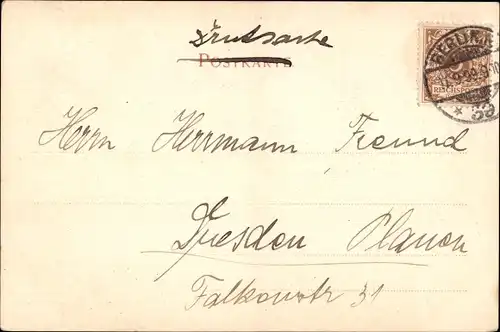 Drucksache
POSTKARTE
BERLIN
REICHSPOST
* 33
Herrn Herrmann Freund
Dresden Plauen
Falkenstr 31